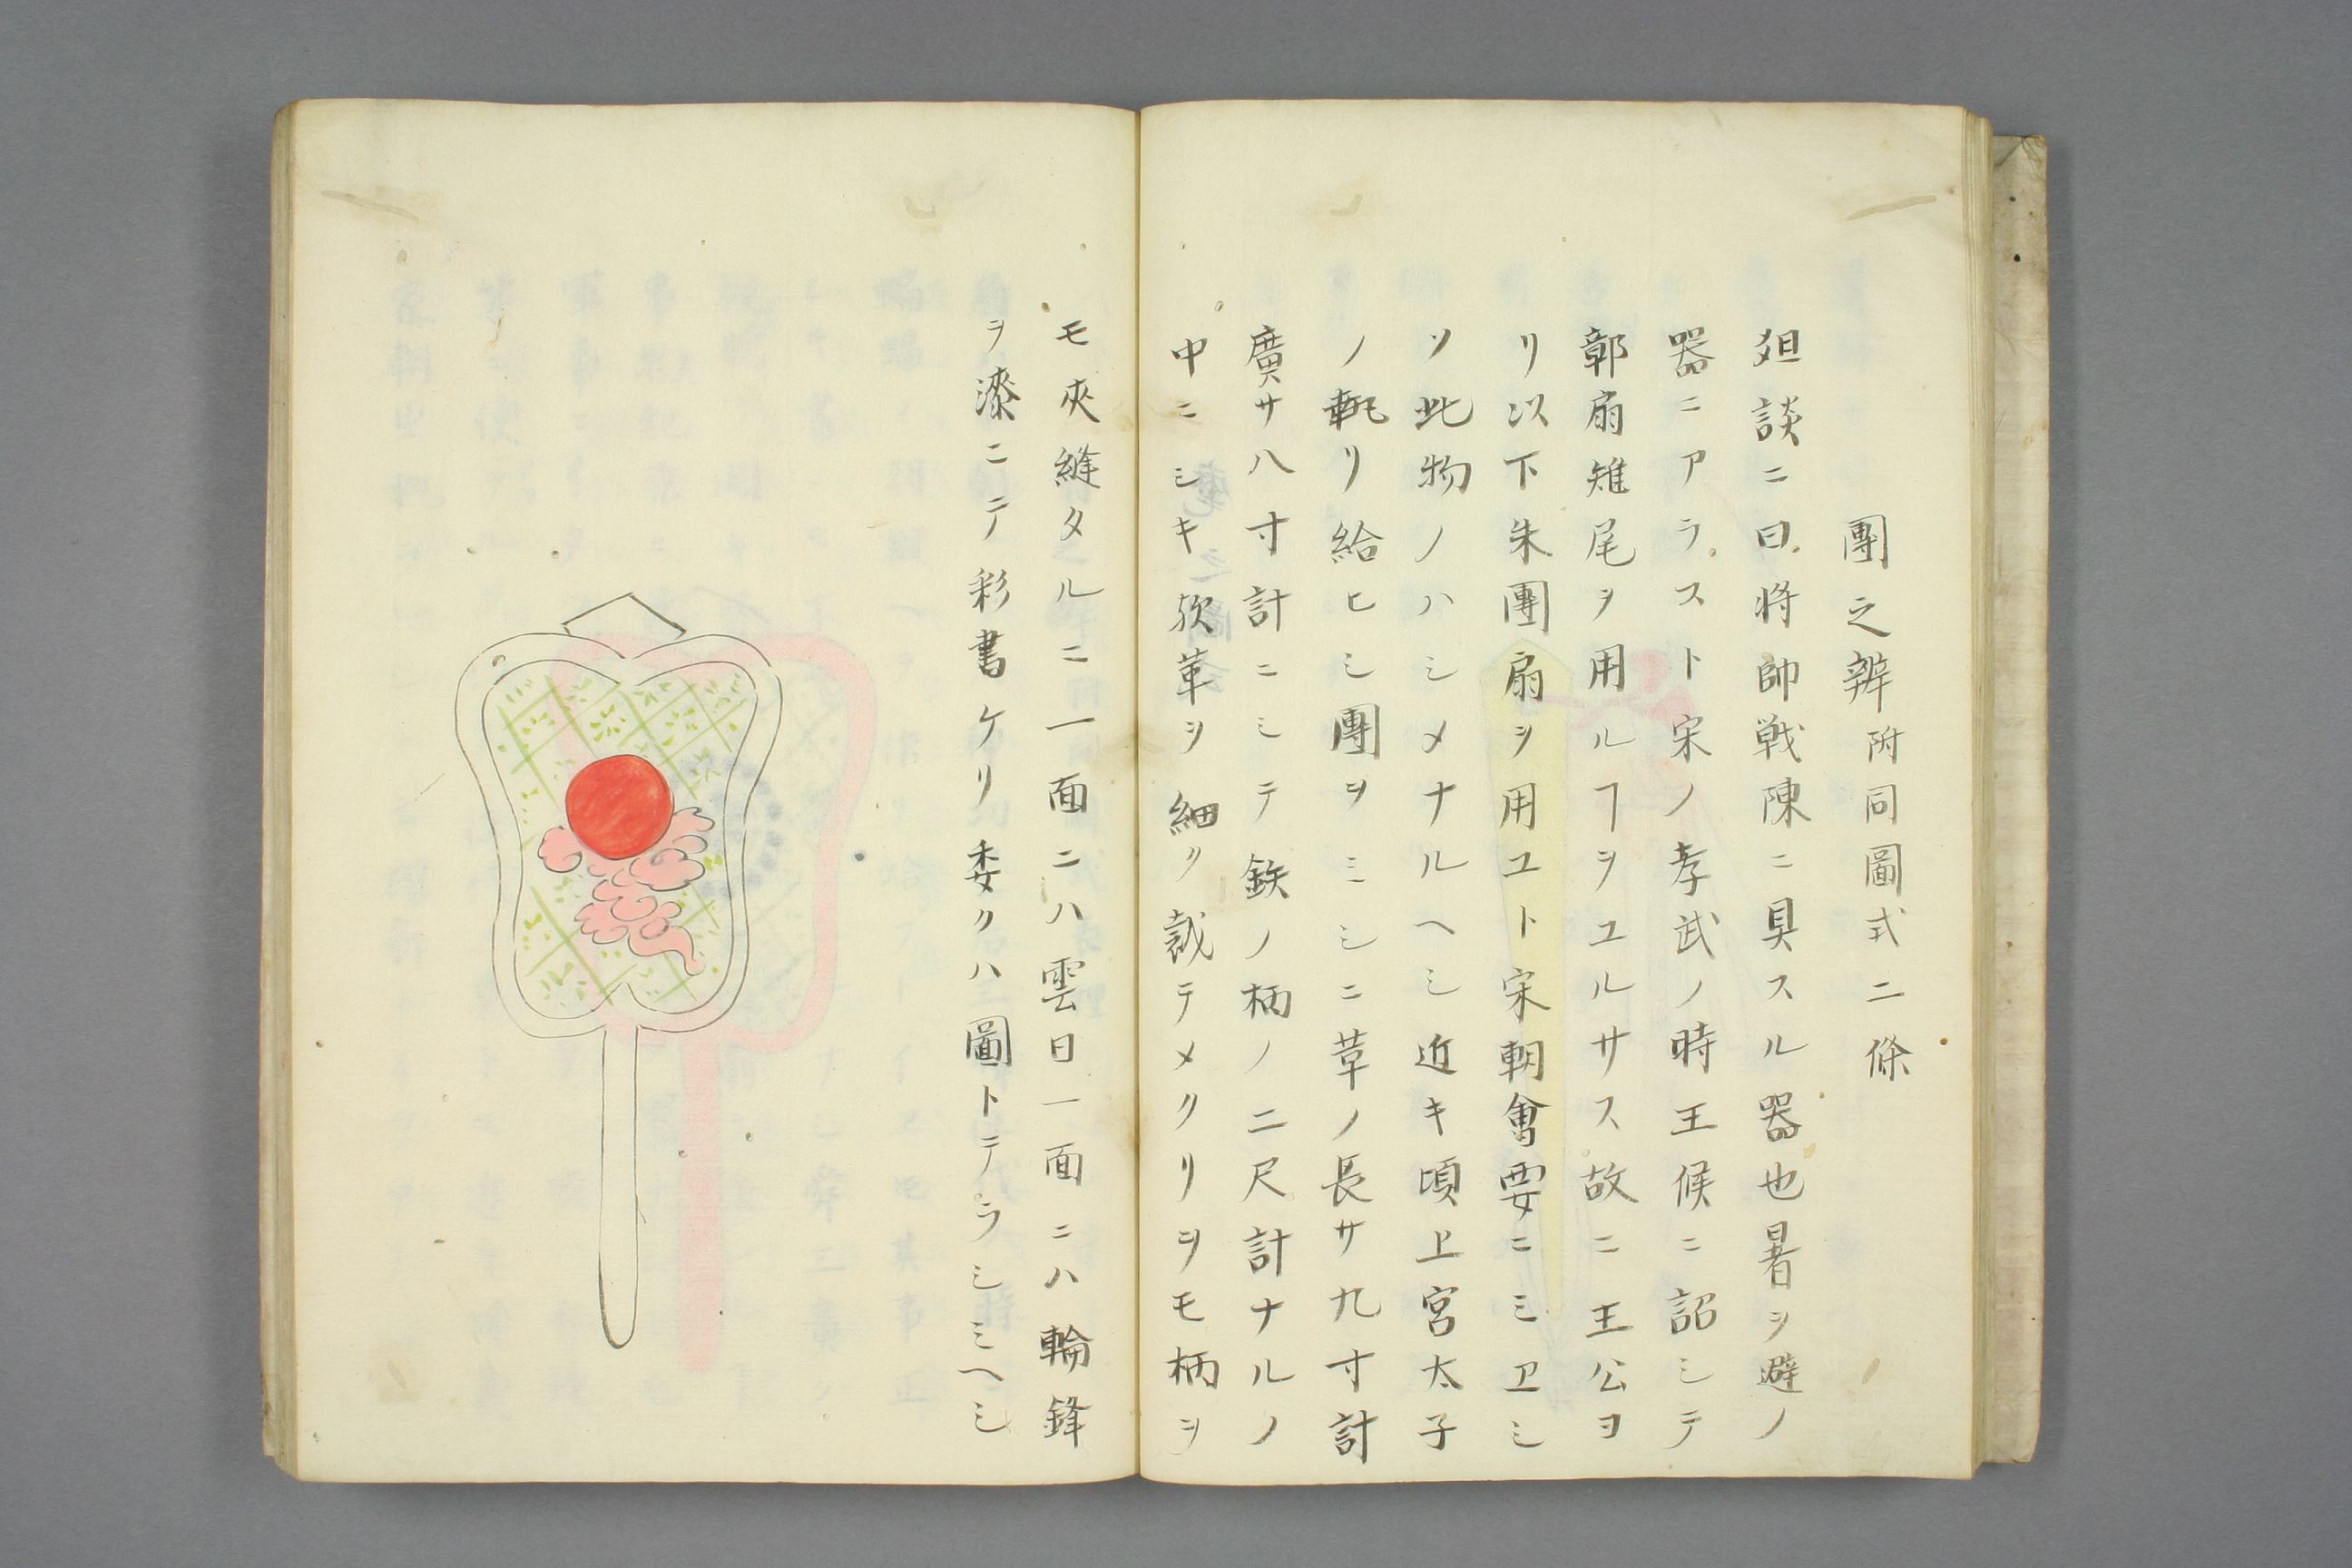 團之辨附同圖式二條
廵談ニ曰将帥戦陳ニ具スル器也暑ヲ避ノ
器ニアラスト宋ノ孝武ノ時王候ニ詔シテ
鄣扇雉尾ヲ用ルヿヲユルサス故ニ王公ヨ
リ以下朱團扇ヲ用ユト宋朝會要ニミヱシ
ソ此物ノハシメナルヘシ近キ頃上宮太子
ノ執リ給ヒシ團ヲミシニ革ノ長サ九寸計
廣サ八寸計ニシテ鉄ノ柄ノ二尺計ナルノ
中ニシキ革ヲ細ク裁テメクリヲモ柄ヲ
モ夾縫タルニ一面ニハ雲日一面ニハ輪鋒
ヲ漆ニテ彩書ケリ委クハ圖トテラシミヘシ